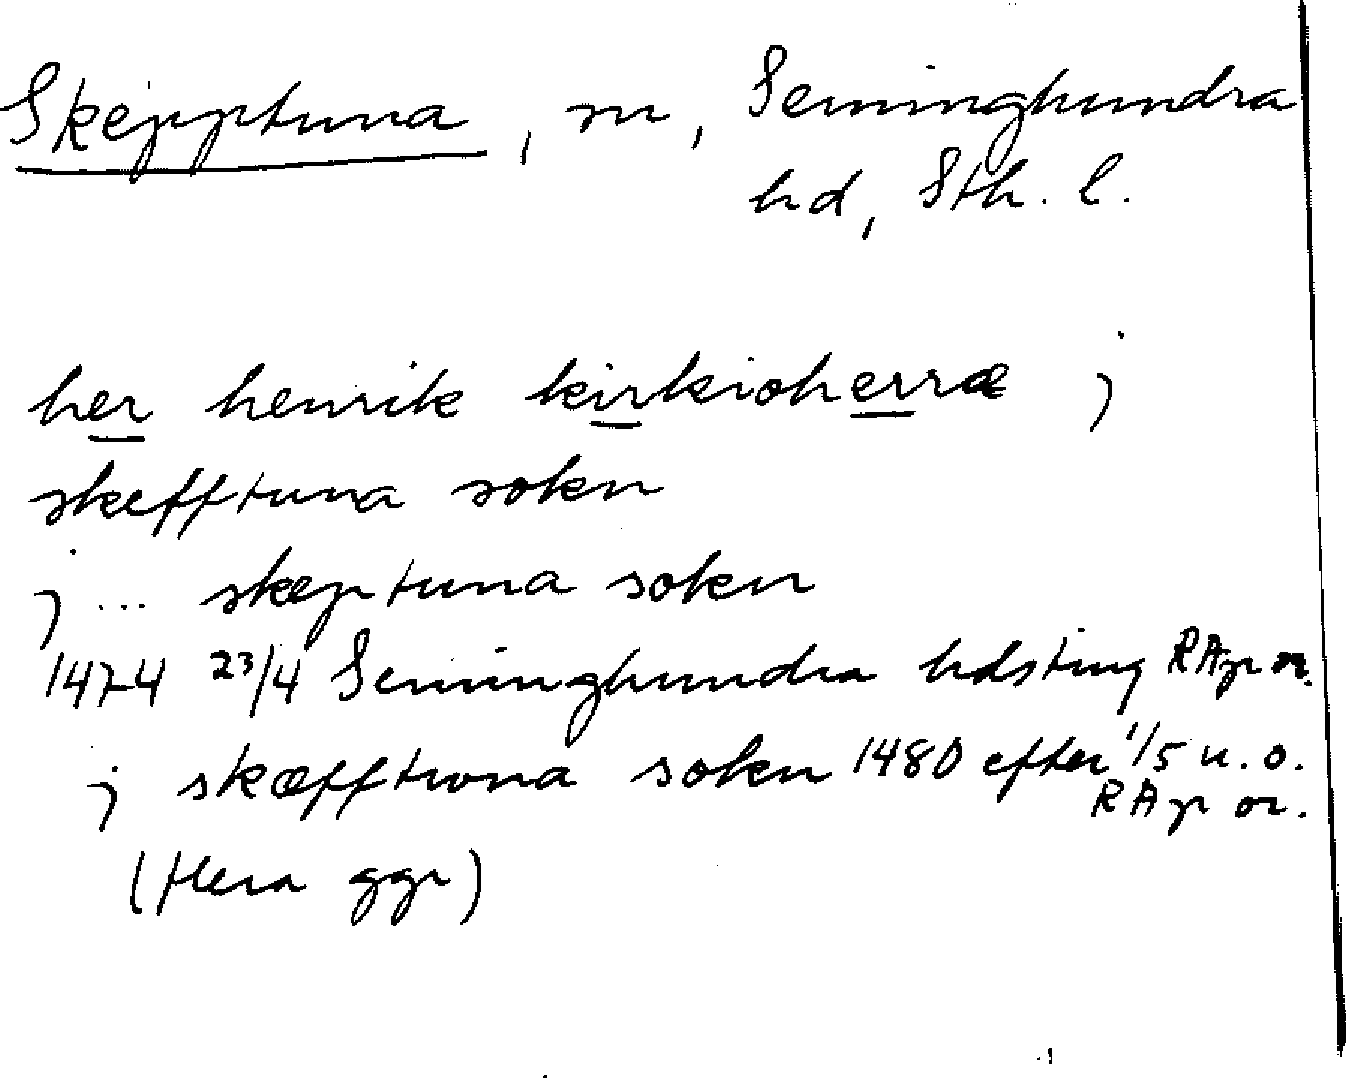 Skepptuna, sn, Seminghundra
hd, Sth. l.
her henrik kirkioherræ j
skefftuna sokn
j ... skeptuna sokn
1474 23/4 Seminghundra hdsting RAp or.
j skæfftwna sokn 1480 efter 1/5 u. o.
RAp or.
(flera ggr)